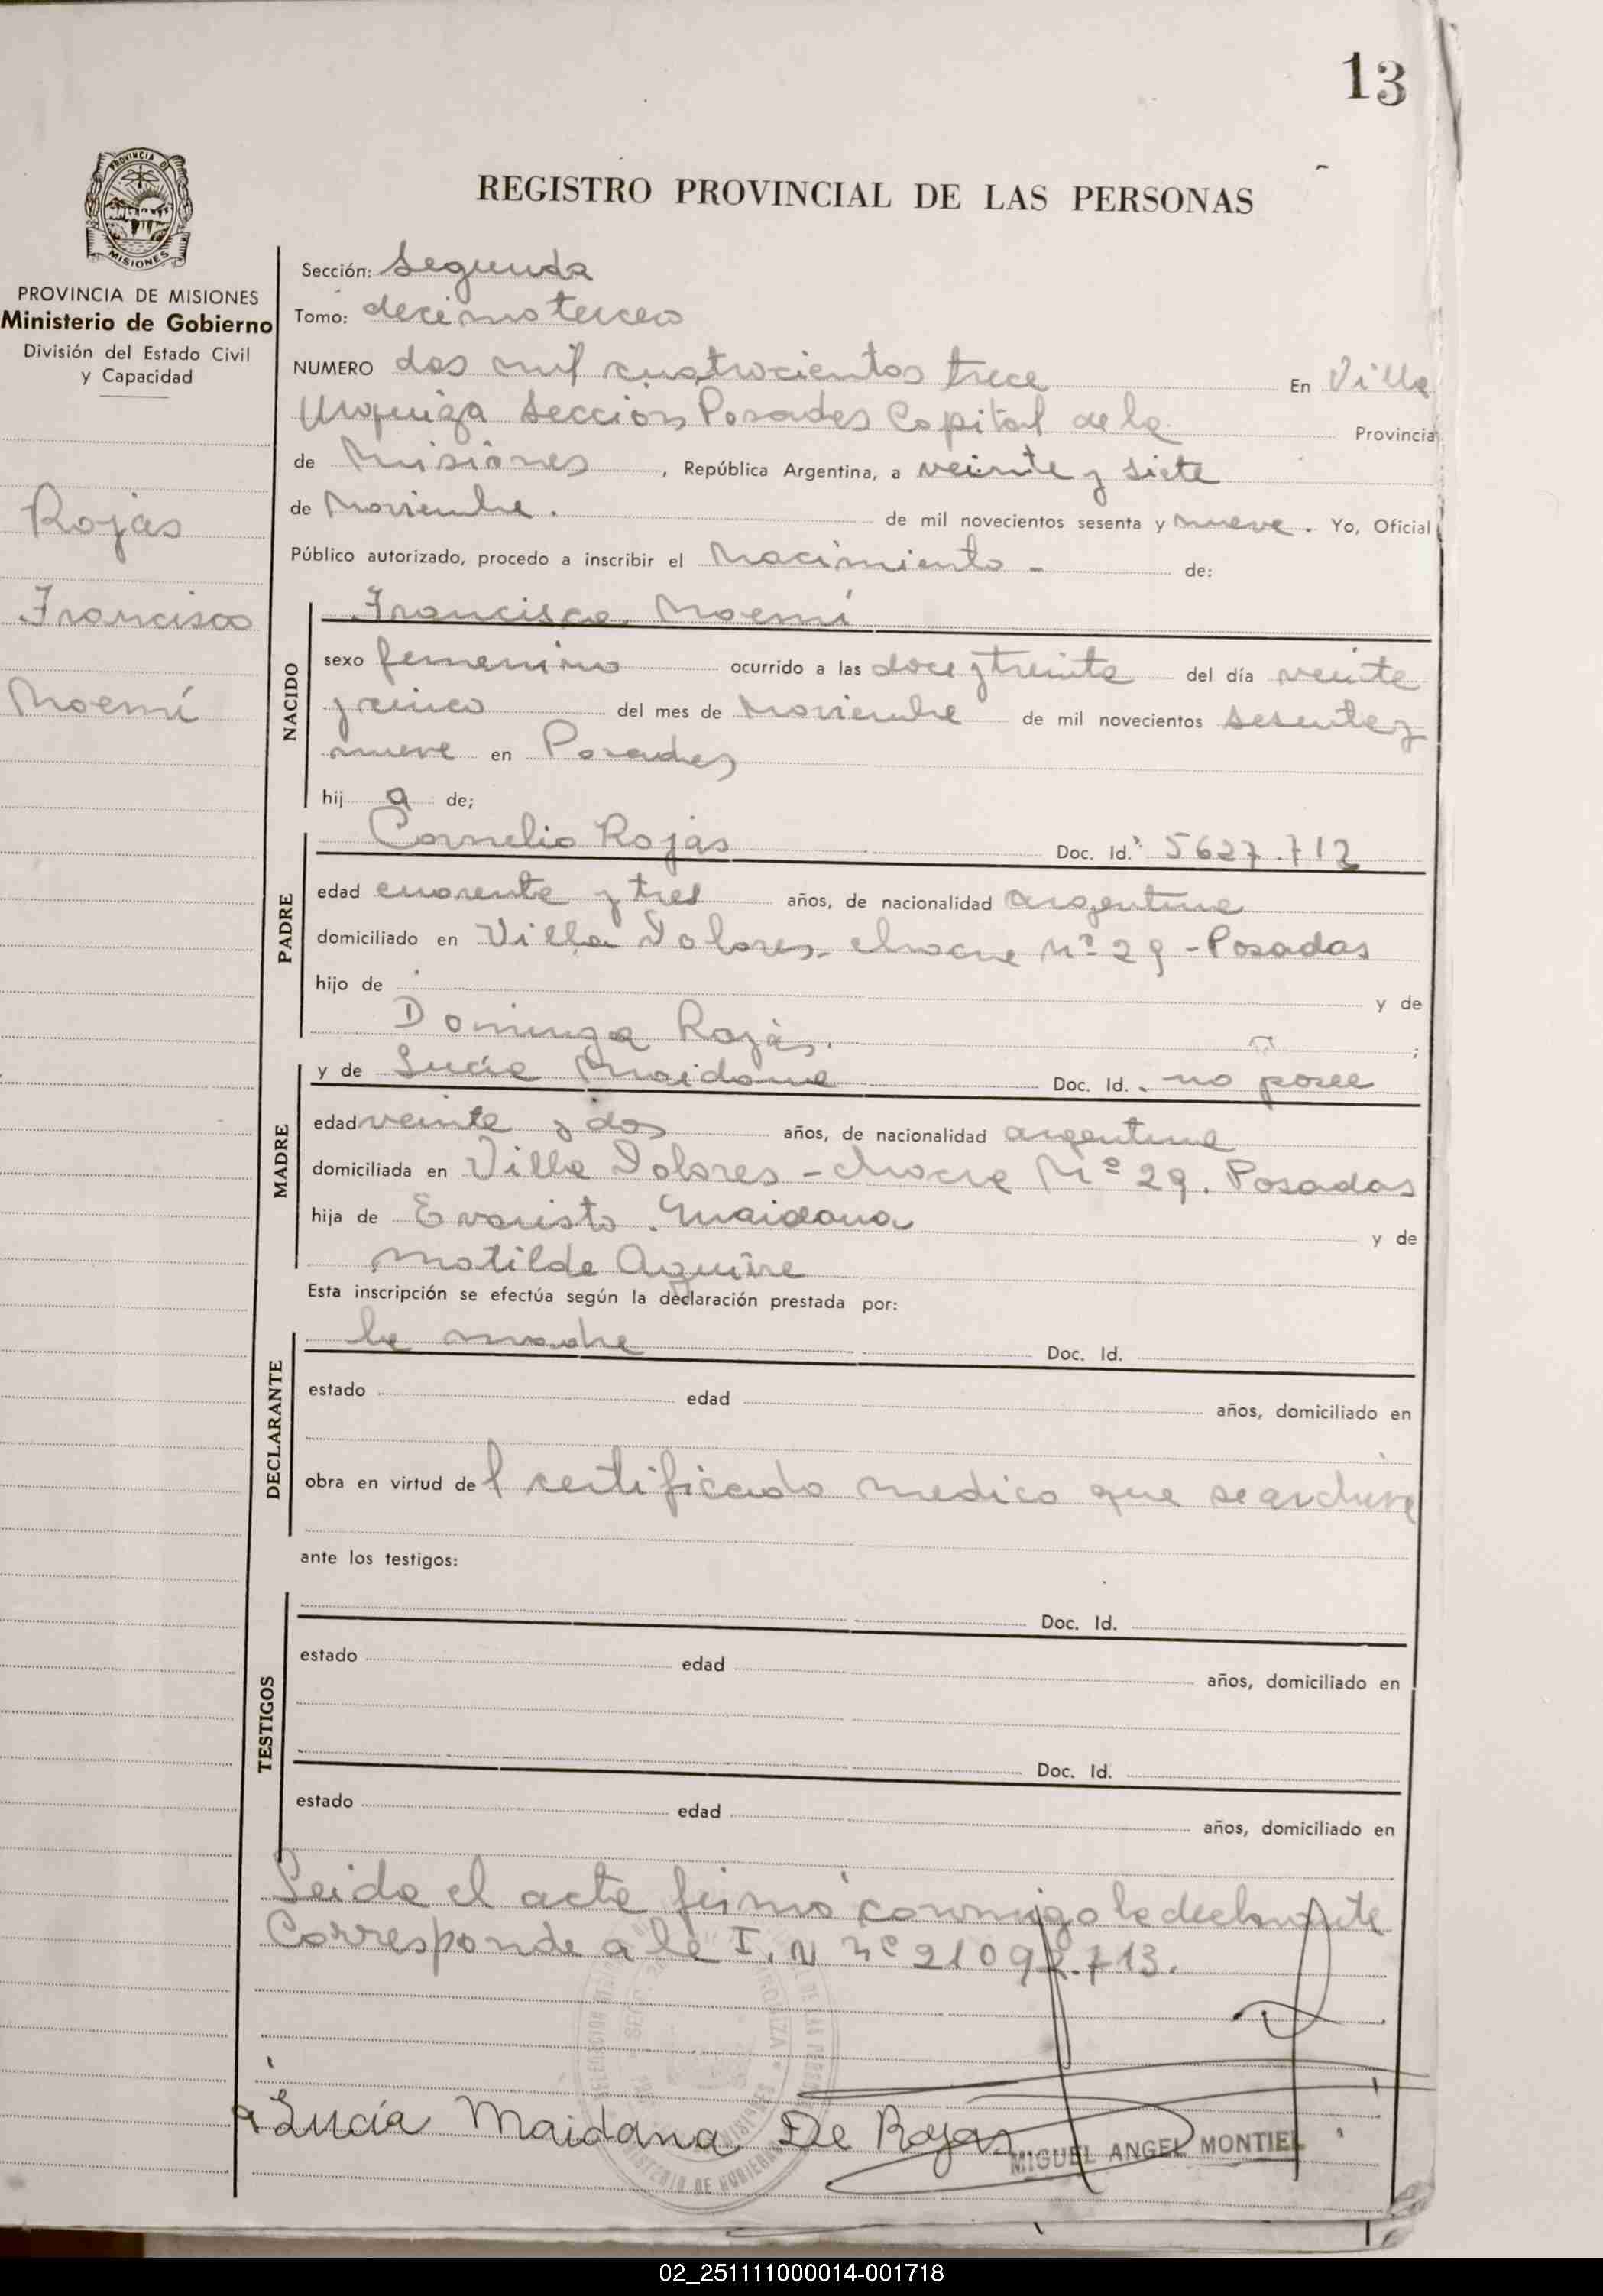 13
REGISTRO PROVINCIAL DE LAS PERSONAS
PROVINCIA DE MISIONES
Ministerio de Gobierno
División del Estado Civil
y Capacidad
Rojas
Francisca
Noemí
Sección: Segunda
Tomo: decimo tercero
NUMERO dos mil cuatrocientos trece En Villa
Urquiza Sección Posadas Capital de la Provincia
de Misiones, República Argentina, a veinte y siete
de Noviembre. de mil novecientos sesenta y nueve. Yo, Oficial
Público autorizado, procedo a inscribir el Nacimiento - de:
Francisca Noemí
NACIDO
sexo femenino ocurrido a las doce y treinta del día veinte
y cinco del mes de Noviembre de mil novecientos sesenta y
nueve en Posadas
hij a de;
PADRE
Cornelio Rojas Doc. Id. 5627.712
edad cuarenta y tres años, de nacionalidad argentina
domiciliado en Villa Dolores - chacra Nº 29 - Posadas
hijo de y de
Dominga Rojas. ;
MADRE
y de Lucía Maidana Doc. Id. no posee
edad veinte y dos años, de nacionalidad argentina
domiciliada en Villa Dolores - chacra Nº 29. Posadas
hija de Evaristo Maidana y de
Matilde Aguirre
Esta inscripción se efectúa según la declaración prestada por:
DECLARANTE
la madre Doc. Id.
estado edad años, domiciliado en
obra en virtud del certificado medico que se archiva
ante los testigos:
TESTIGOS
Doc. Id.
estado edad años, domiciliado en
Doc. Id.
estado edad años, domiciliado en
Leida el acta firmó conmigo la declarante
Corresponde a la I. N nº 21092.713.
Lucía Maidana De Rojas
MIGUEL ANGEL MONTIEL
02_251111000014-001718